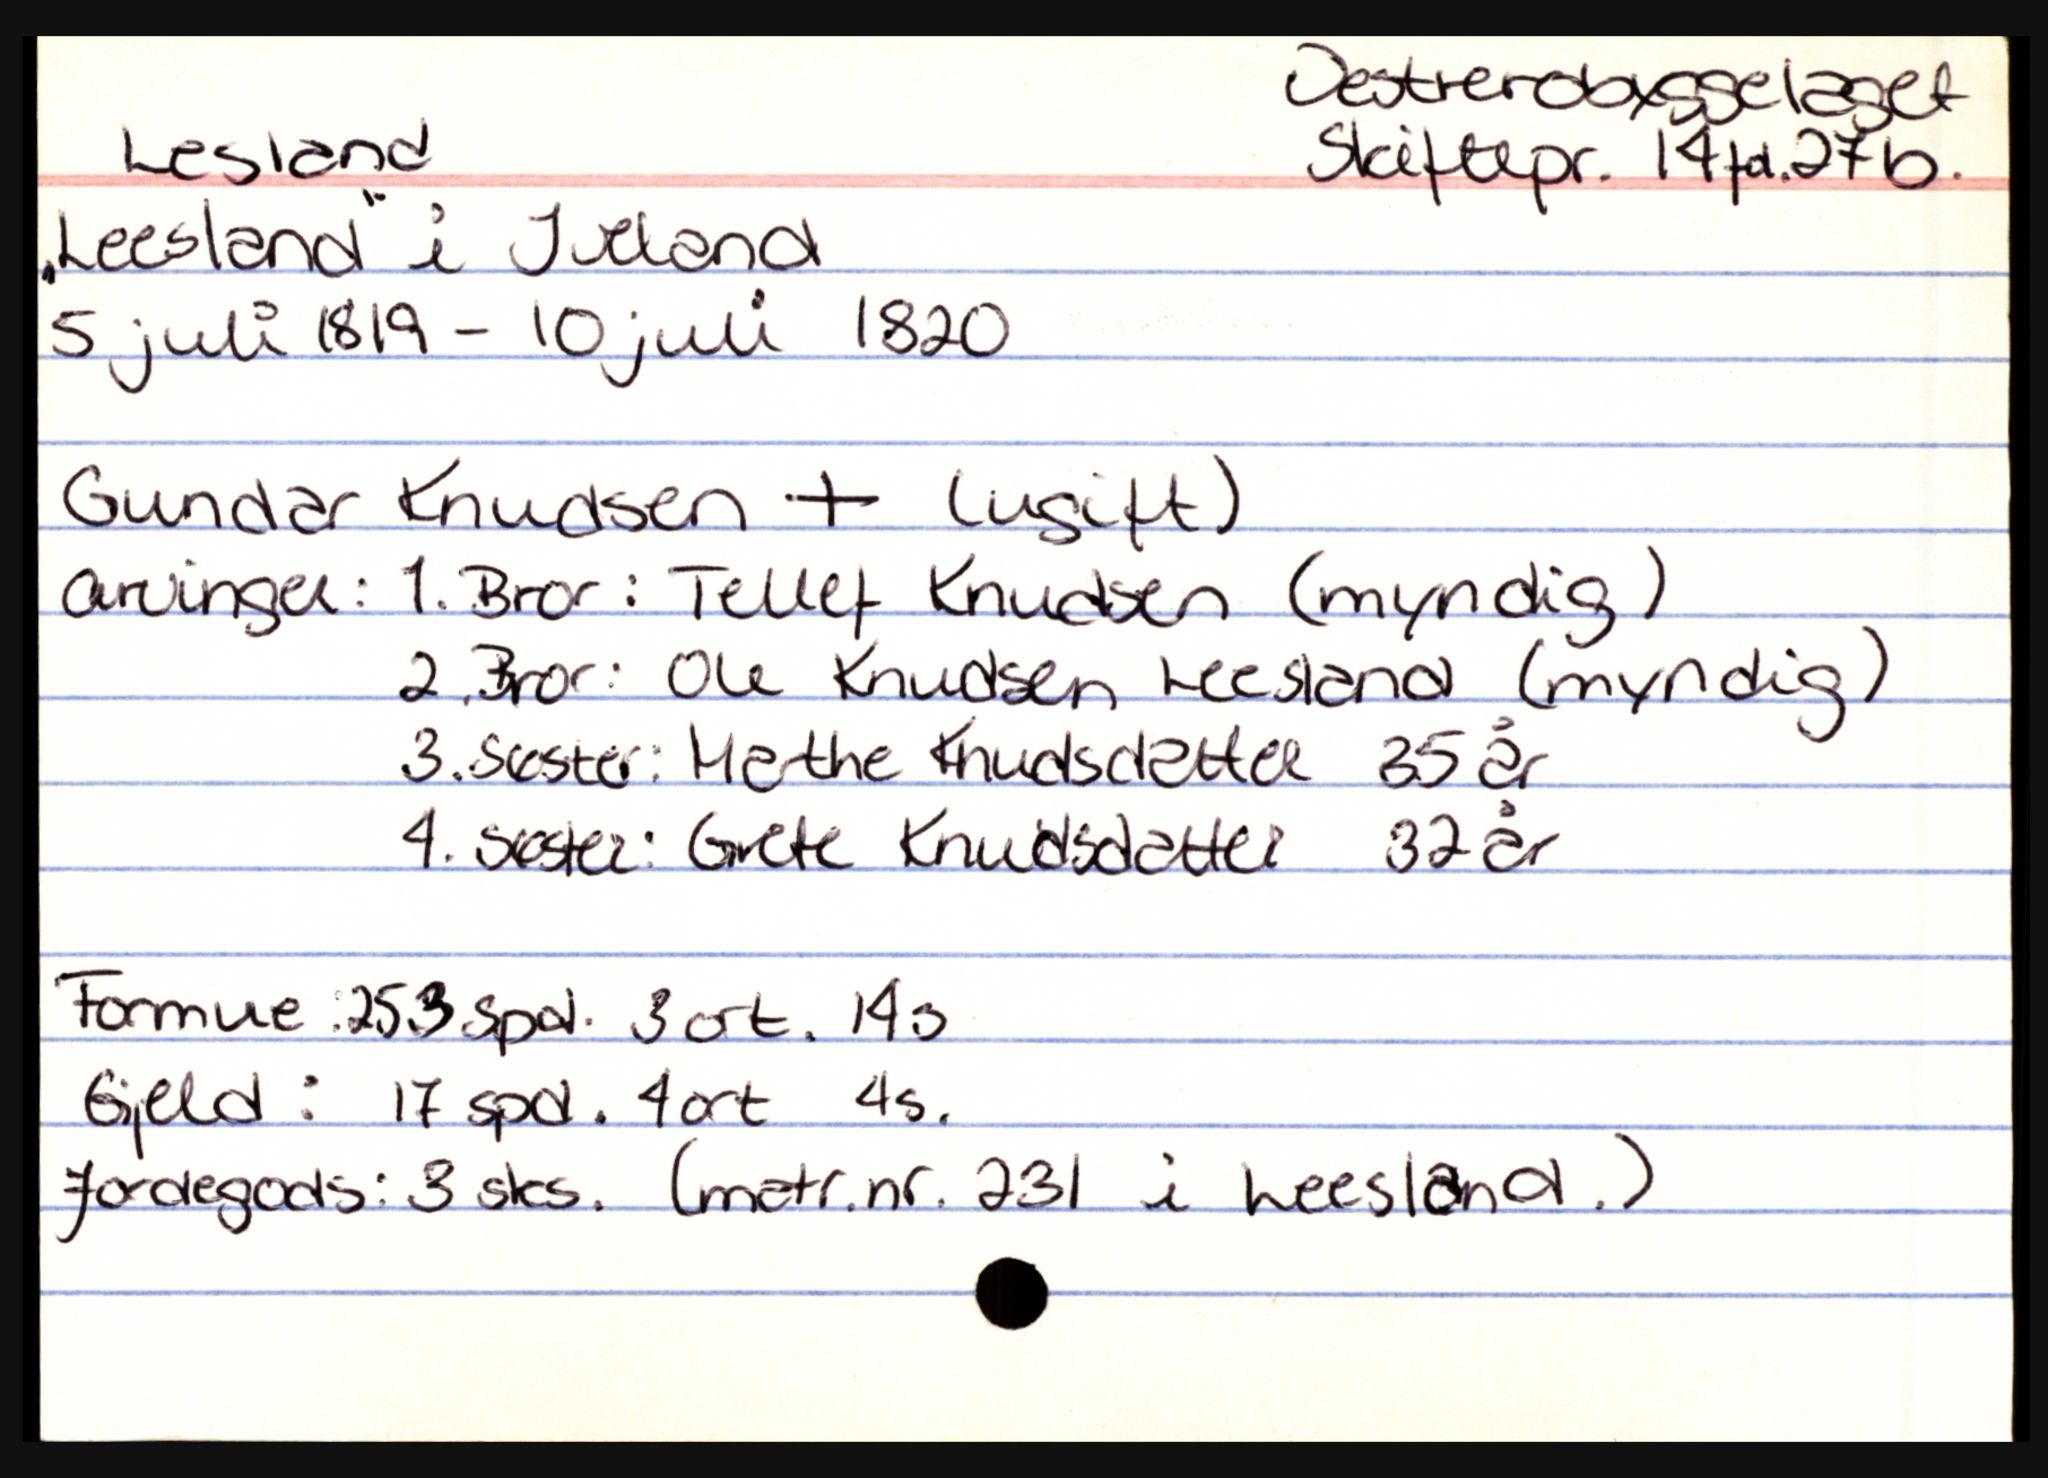 Vestrerobyggelaget
Lesland
Skiftepr. 14 fol. 27b.
"Leesland" i Iveland
5 juli 1819 - 10 juli 1820
Gundar Knudsen + (ugift)
Arvinger: 1. Bror: Tellef Knudsen (myndig)
2. Bror: Ole Knudsen Leesland (myndig)
3. Søster: Marthe Knudsdatter 35 år
4. Søster: Grete Knudsdatter 32 år
Formue: 253 spd. 3 ort. 14 s
Gjeld: 17 spd. 4 ort 4 s.
Jordegods: 3 sks. (matr.nr. 231 i Leesland.)